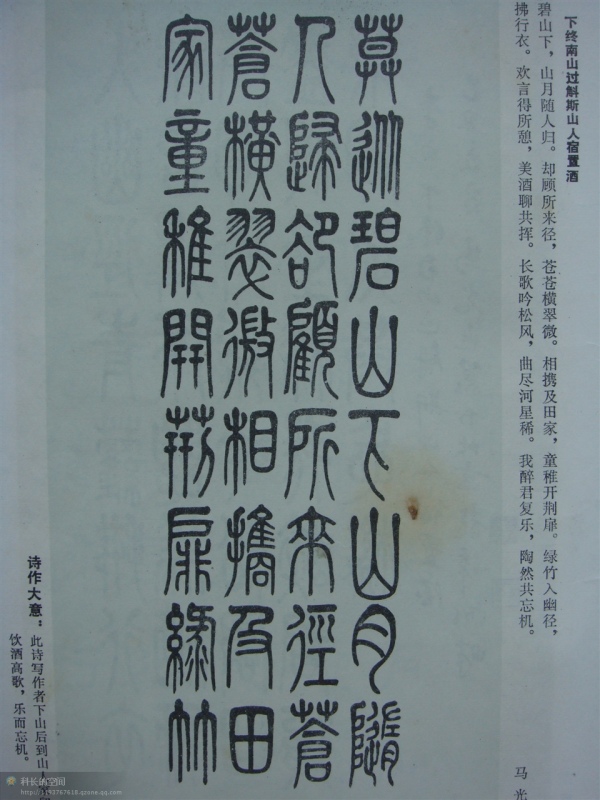 下终南山过斛斯山人宿置酒
碧山下，山月随人归。却顾所来径，苍苍横翠微。相携及田家，童稚开荆扉。绿竹入幽径，
拂行衣。欢言得所憩，美酒聊共挥。长歌吟松风，曲尽河星稀。我醉君复乐，陶然共忘机。
马光
莫從碧山下山月隨
人歸卻顧所來徑蒼
蒼橫翠微相攜及田
家童稚開荊扉綠竹
诗作大意：此诗写作者下山后到山
饮酒高歌，乐而忘机。
科长的空间